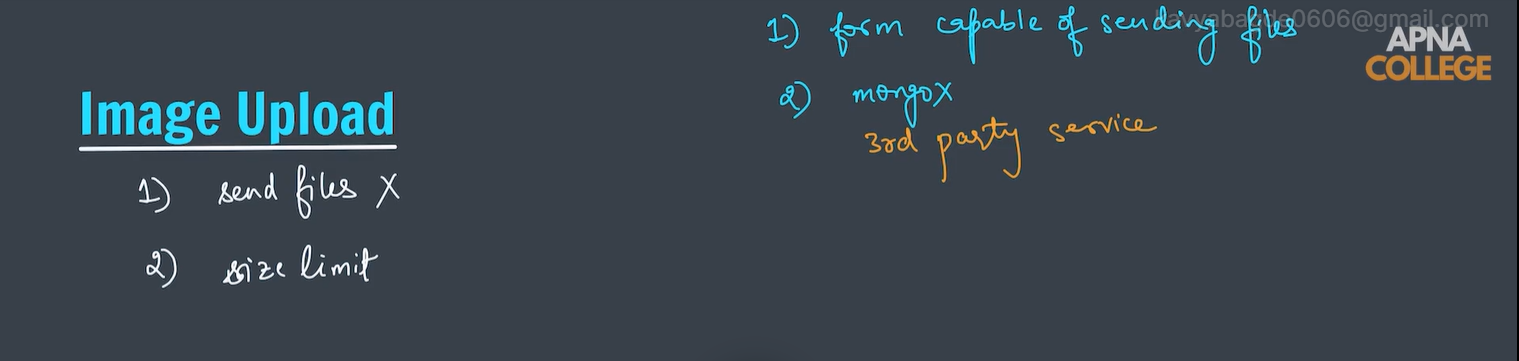 Image Upload
1) send files X
2) size limit
1) form capable of sending files
2) mongo X
3rd party service
0606@gmail.com
APNA
COLLEGE